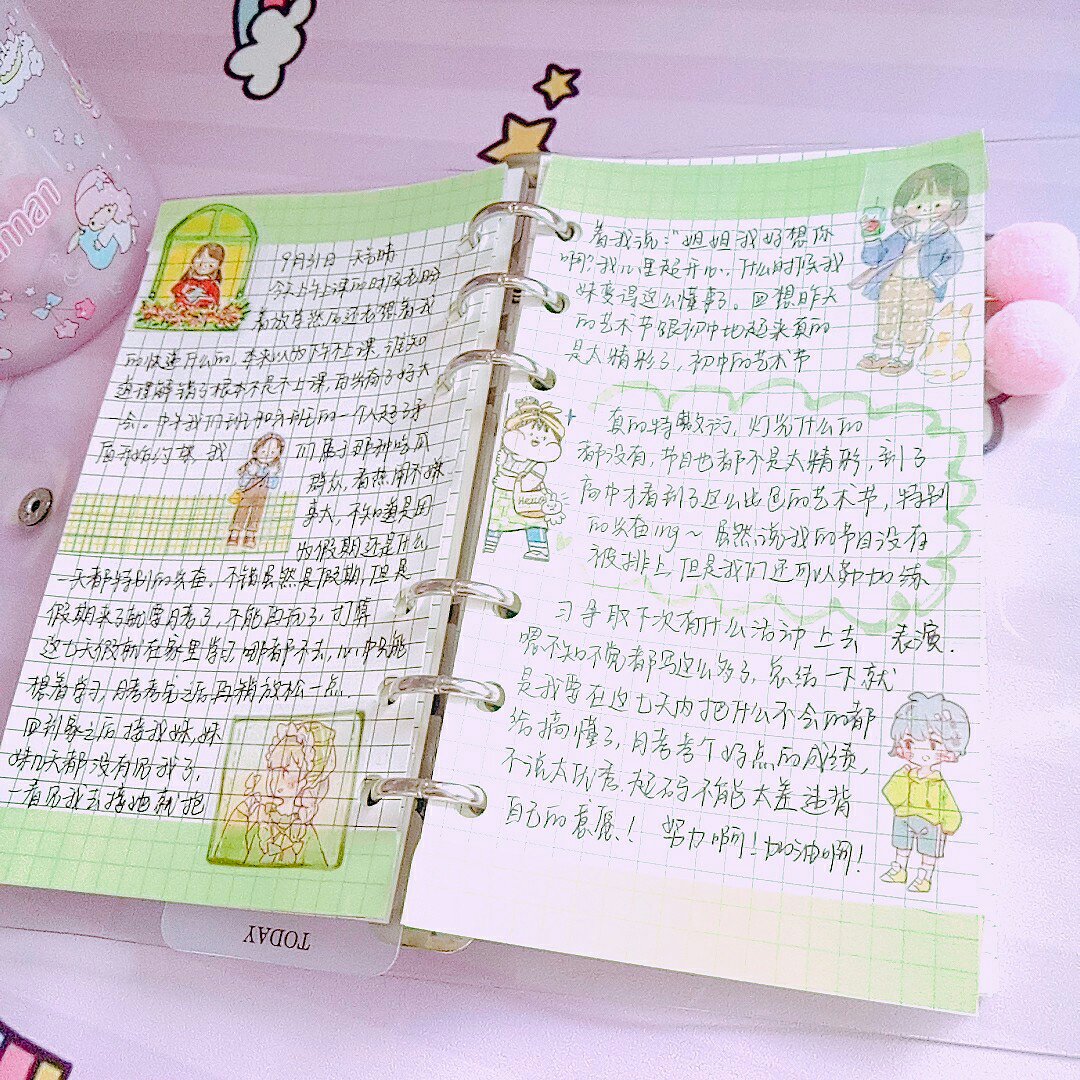 9月31日 天气晴
今天上午上课的时候老师
看放
的快进什么的,本来以为下午不上课,谁知
道理解错了根本不是不上课,白兴奋了好大
一会。中午我们班和 班的一个人起了矛
盾开始约架,我
们属于那种吃瓜
群众,看热闹不嫌
事大,不知道是因
为假期还是什么,
一天都特别的兴奋。不错虽然是假期,但是
假期来了就要月考了,不能再玩了,打算
这七天假就在家里学习,哪都不去,心中只能
想着学习,月考考完之后再稍放松一点
回到家之后接我妹,妹
妹几天都没有见我了,
一看见我去接她就抱
着我说:"姐姐我好想你
啊"我心里超开心,什么时候我
妹变得这么懂事了。回想昨天
的艺术节跟初中比起来真的
是太精彩了,初中的艺术节
真的特敷衍,灯光什么的
都没有,节目也都不是太精彩,到了
高中才看到了这么出色的艺术节,特别
的兴奋ing~ 虽然说我的节目没有
被排上,但是我们还可以勤加练
习争取下次有什么活动上去 表演.
嗯不知不觉都写这么多了,总结一下就
是我要在这七天内把什么不会的都
给搞懂了,月考考个好点的成绩,
不说太优秀,起码不能太差违背
自己的意愿! 努力啊!加油啊!
Hello
TODAY